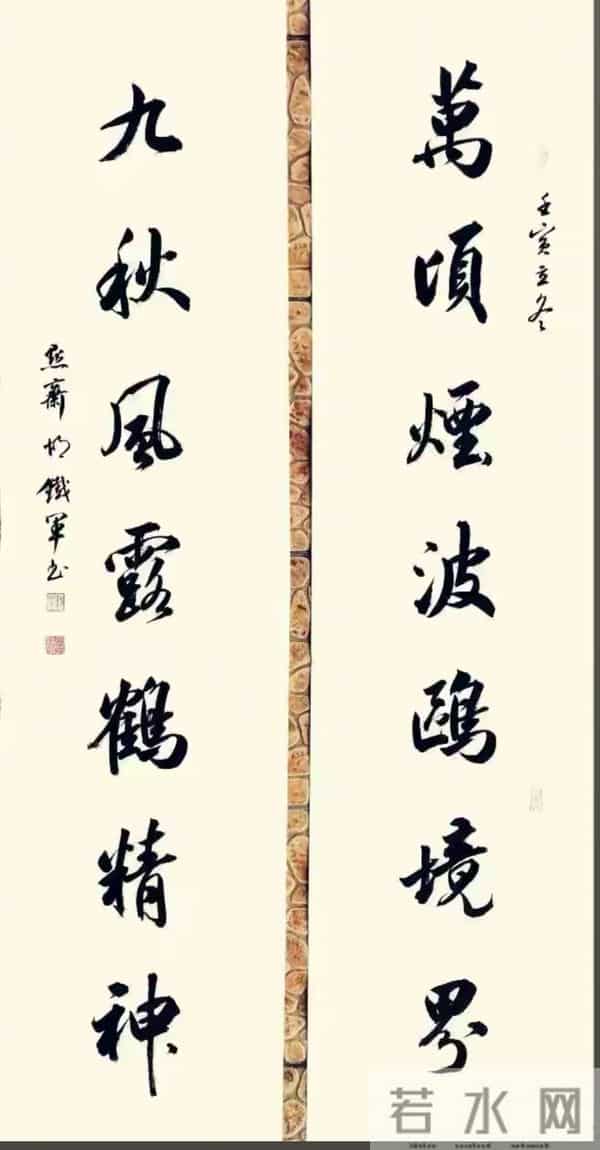 壬寅立冬
萬頃煙波鷗境界
九秋風露鶴精神
齋胡鐵軍书
若水网